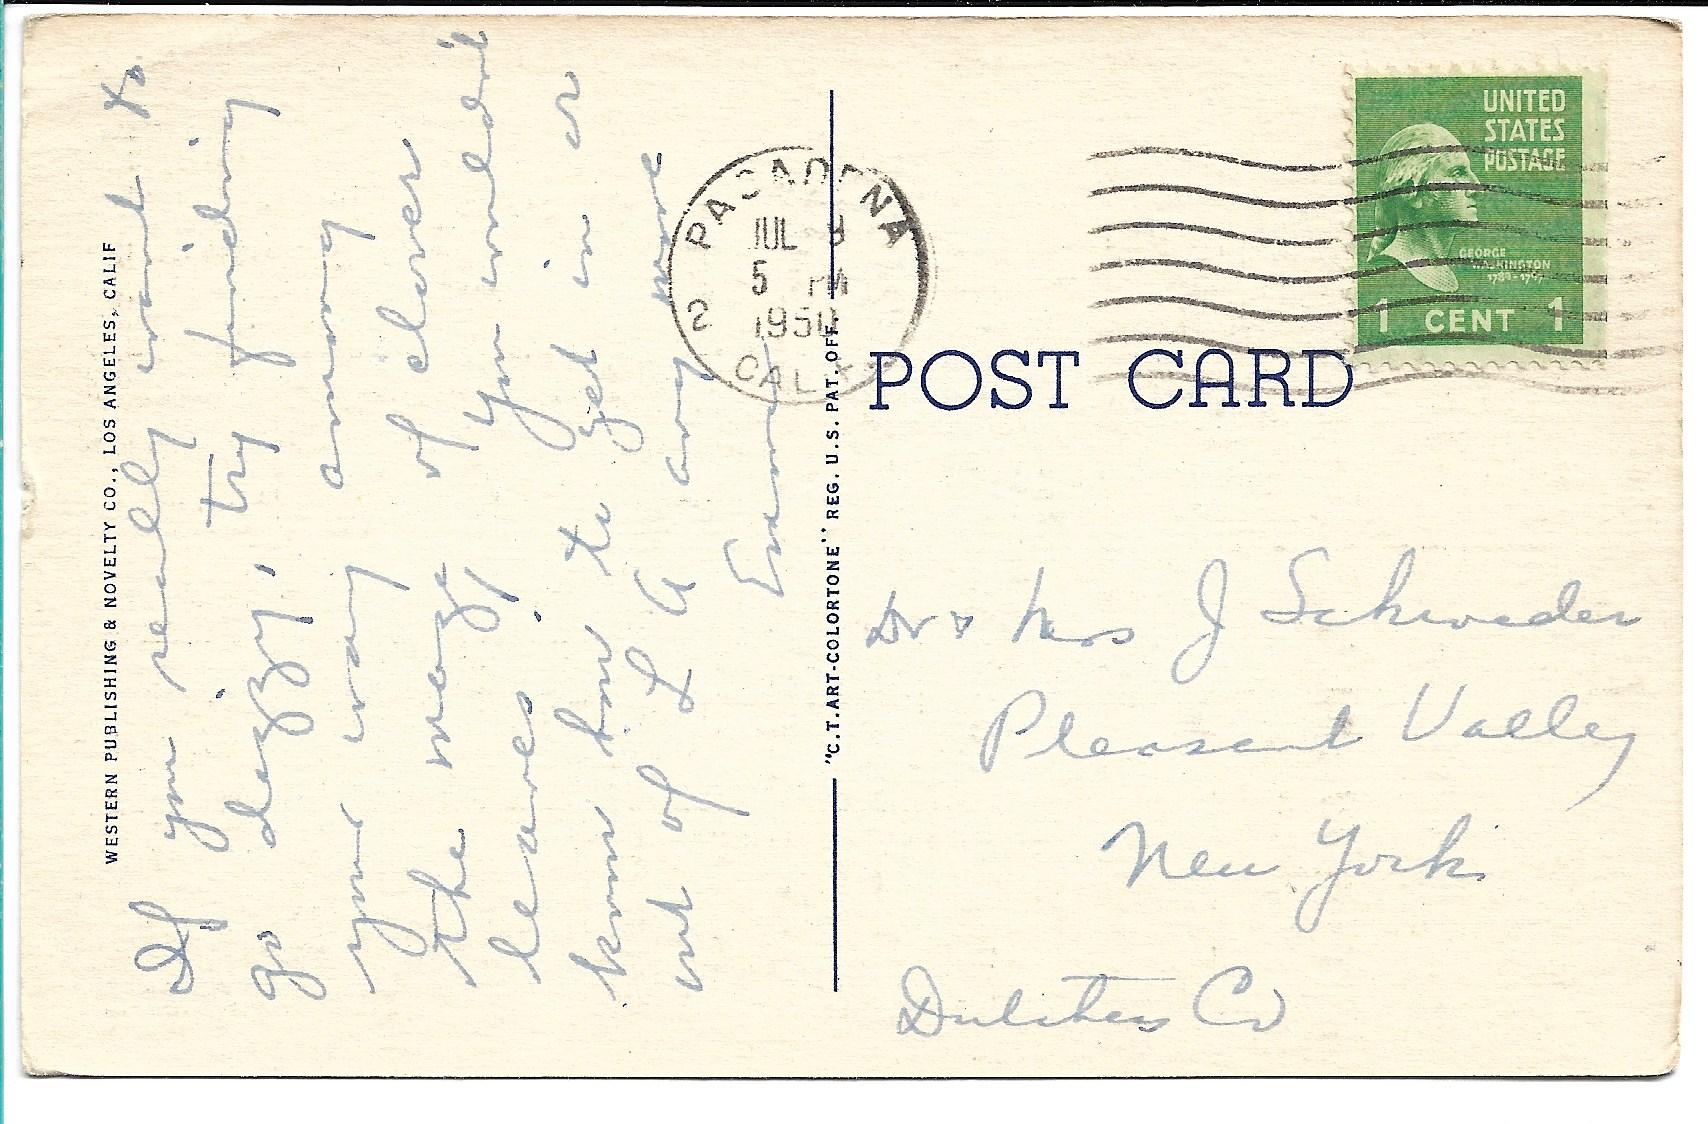 WESTERN PUBLISHING & NOVELTY CO., LOS ANGELES, CALIF
If you really want to
go dizzy, try finding
your way among
the maze of clover
leaves. You wouldn't
know how to get in or
out of L A any more
"C.T. ART-COLORTONE" REG. U.S. PAT. OFF.
PASADENA
JUL
5 PM
1950
2
CALIF
UNITED
STATES
POSTAGE
GEORGE
WASHINGTON
1789-1797
1 CENT 1
POST CARD
Dr & Mrs J Schroeder
Pleasant Valley
New York
Dutchess Co